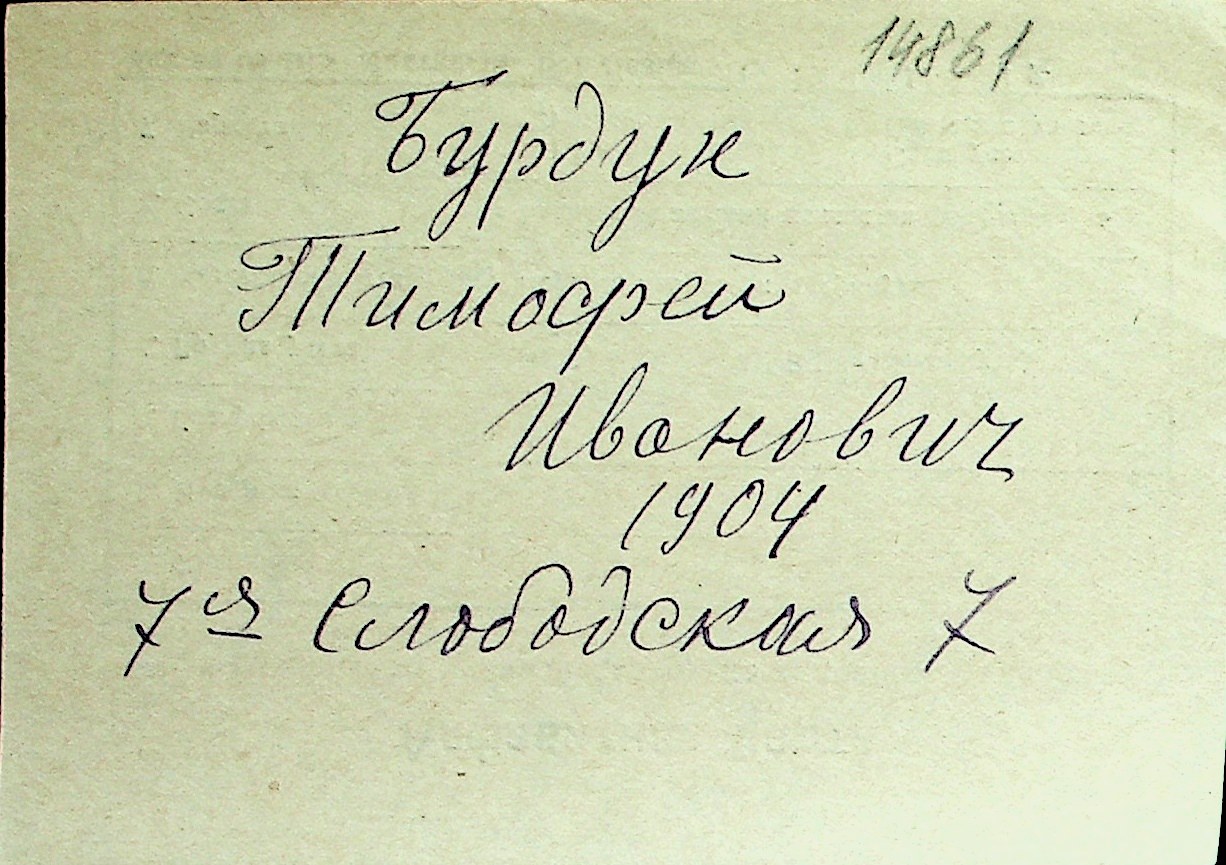 14861.
Бурдук
Тимофей
Иванович
1904
7я Слободская 7